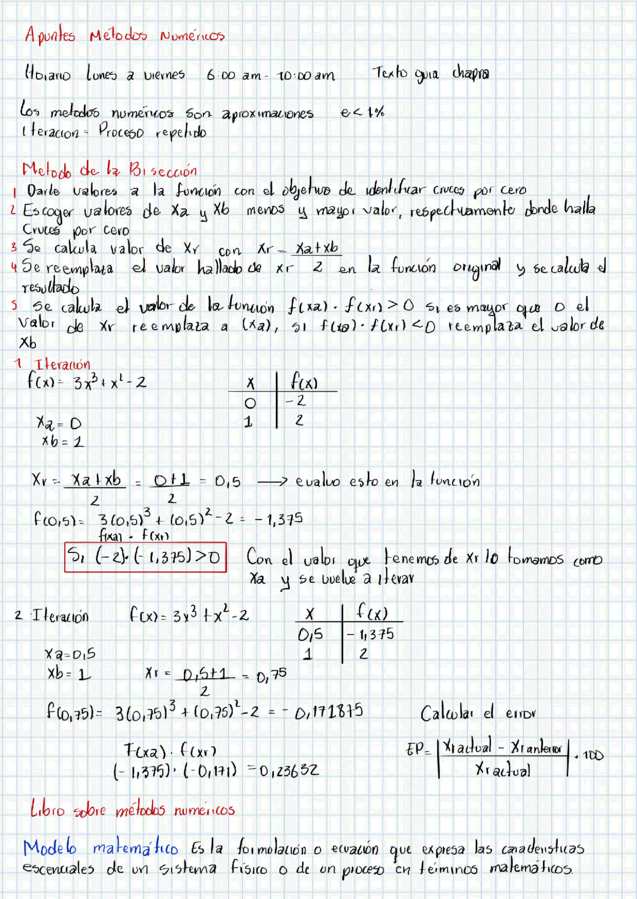 Apuntes Métodos Numéricos
Horario Lunes a viernes 6:00 am - 10:00 am Texto guia chapra
Los metodos numéricos son aproximaciones e < 1%
Iteracion = Proceso repetido
Metodo de la Bisección
1 Darle valores a la función con el objetivo de identificar cruces por cero
2 Escoger valores de Xa y Xb menos y mayor valor, respectivamente donde halla
Cruces por cero
3 Se calcula valor de Xr con Xr = (Xa+xb)/2
4 Se reemplaza el valor hallado de xr en la función original y se calcula el
resultado
5 Se calcula el valor de la función f(xa) · f(xr) > 0 si es mayor que 0 el
valor de Xr reemplaza a (Xa), si f(xa) · f(xr) < 0 reemplaza el valor de
Xb
1 Iteración
f(x) = 3x³ + x² - 2
x | f(x)
0 | -2
1 | 2
Xa = 0
xb = 1
Xr = (Xa+xb)/2 = (0+1)/2 = 0,5 → evaluo esto en la función
f(0,5) = 3(0,5)³ + (0,5)² - 2 = -1,375
f(xa) · f(xr)
Si (-2) · (-1,375) > 0 Con el valor que tenemos de xr lo tomamos como
Xa y se vuelve a iterar
2 Iteración f(x) = 3x³ + x² - 2
x | f(x)
0,5 | -1,375
1 | 2
Xa = 0,5
xb = 1 Xr = (0,5+1)/2 = 0,75
f(0,75) = 3(0,75)³ + (0,75)² - 2 = -0,171875 Calcular el error
F(xa) · f(xr)
(-1,375) · (-0,171) = 0,23632
EP = |(Xr actual - Xr anterior)/Xr actual| · 100
Libro sobre métodos numéricos
Modelo matemático Es la formulación o ecuación que expresa las caracteristicas
escenciales de un sistema físico o de un proceso en términos matemáticos